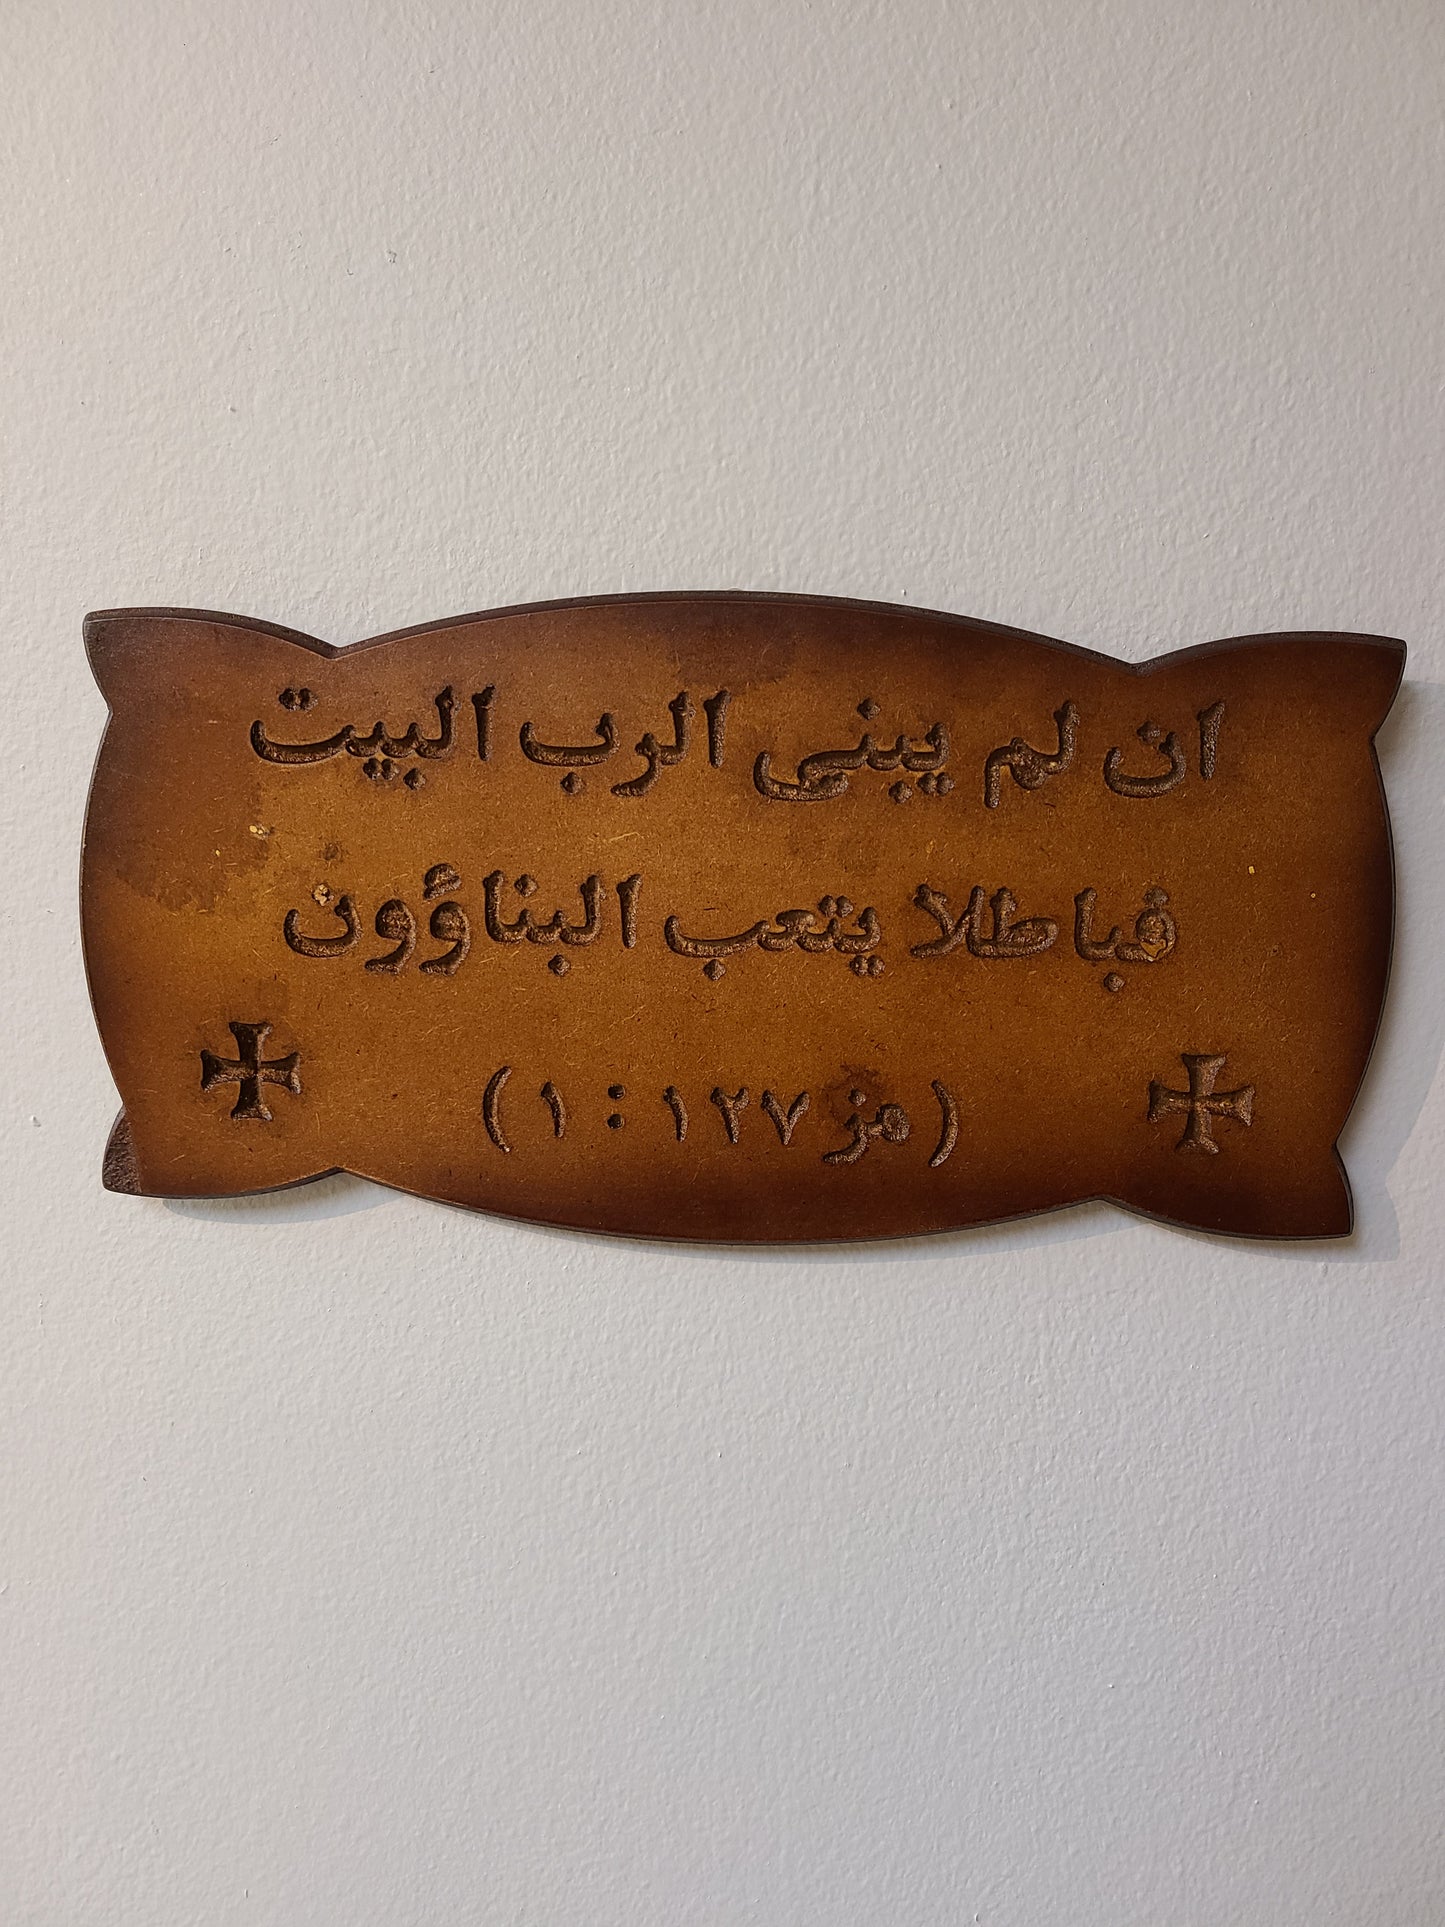 ان لم يبنى الرب البيت
فباطلا يتعب البناؤون
(مز ١٢٧ : ١)